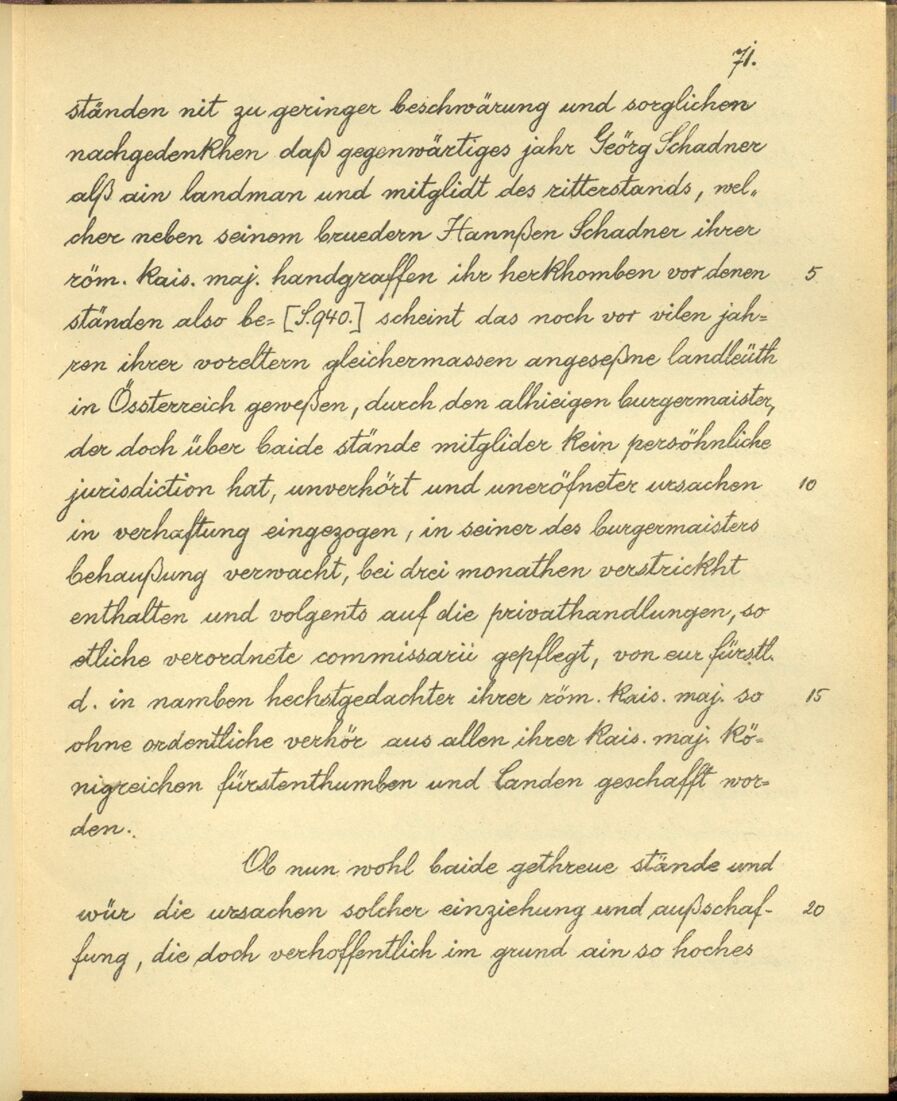 71.
ständen nit zu geringer beschwärung und sorglichen
nachgedenkhen daß gegenwärtiges jahr Geörg Schadner
alß ain landman und mitglidt des ritterstands, wel„
cher neben seinem bruedern Hannßen Schadner ihrer
röm. kais. maj. handgraffen ihr herkhomben vor denen 5
ständen also be= [S.940.] scheint das noch vor vilen jah=
ren ihrer voreltern gleichermassen angeseßne landleüth
in Össterreich geweßen, durch den alhieigen burgermaister,
der doch über baide stände mitglider kein persöhnliche
jurisdiction hat, unverhört und uneröfneter ursachen 10
in verhaftung eingezogen, in seiner des burgermaisters
behaußung verwacht, bei drei monathen verstrickht
enthalten und volgents auf die privathandlungen, so
etliche verordnete commissarii gepflegt, von eur fürstl.
d. in namben hechstgedachter ihrer röm. kais. maj. so 15
ohne ordentliche verhör aus allen ihrer kais. maj. kö=
nigreichen fürstenthumben und landen geschafft wor=
den.
Ob nun wohl baide gethreue stände und
wür die ursachen solcher einziehung und außschaf- 20
fung, die doch verhoffentlich im grund ain so hoches